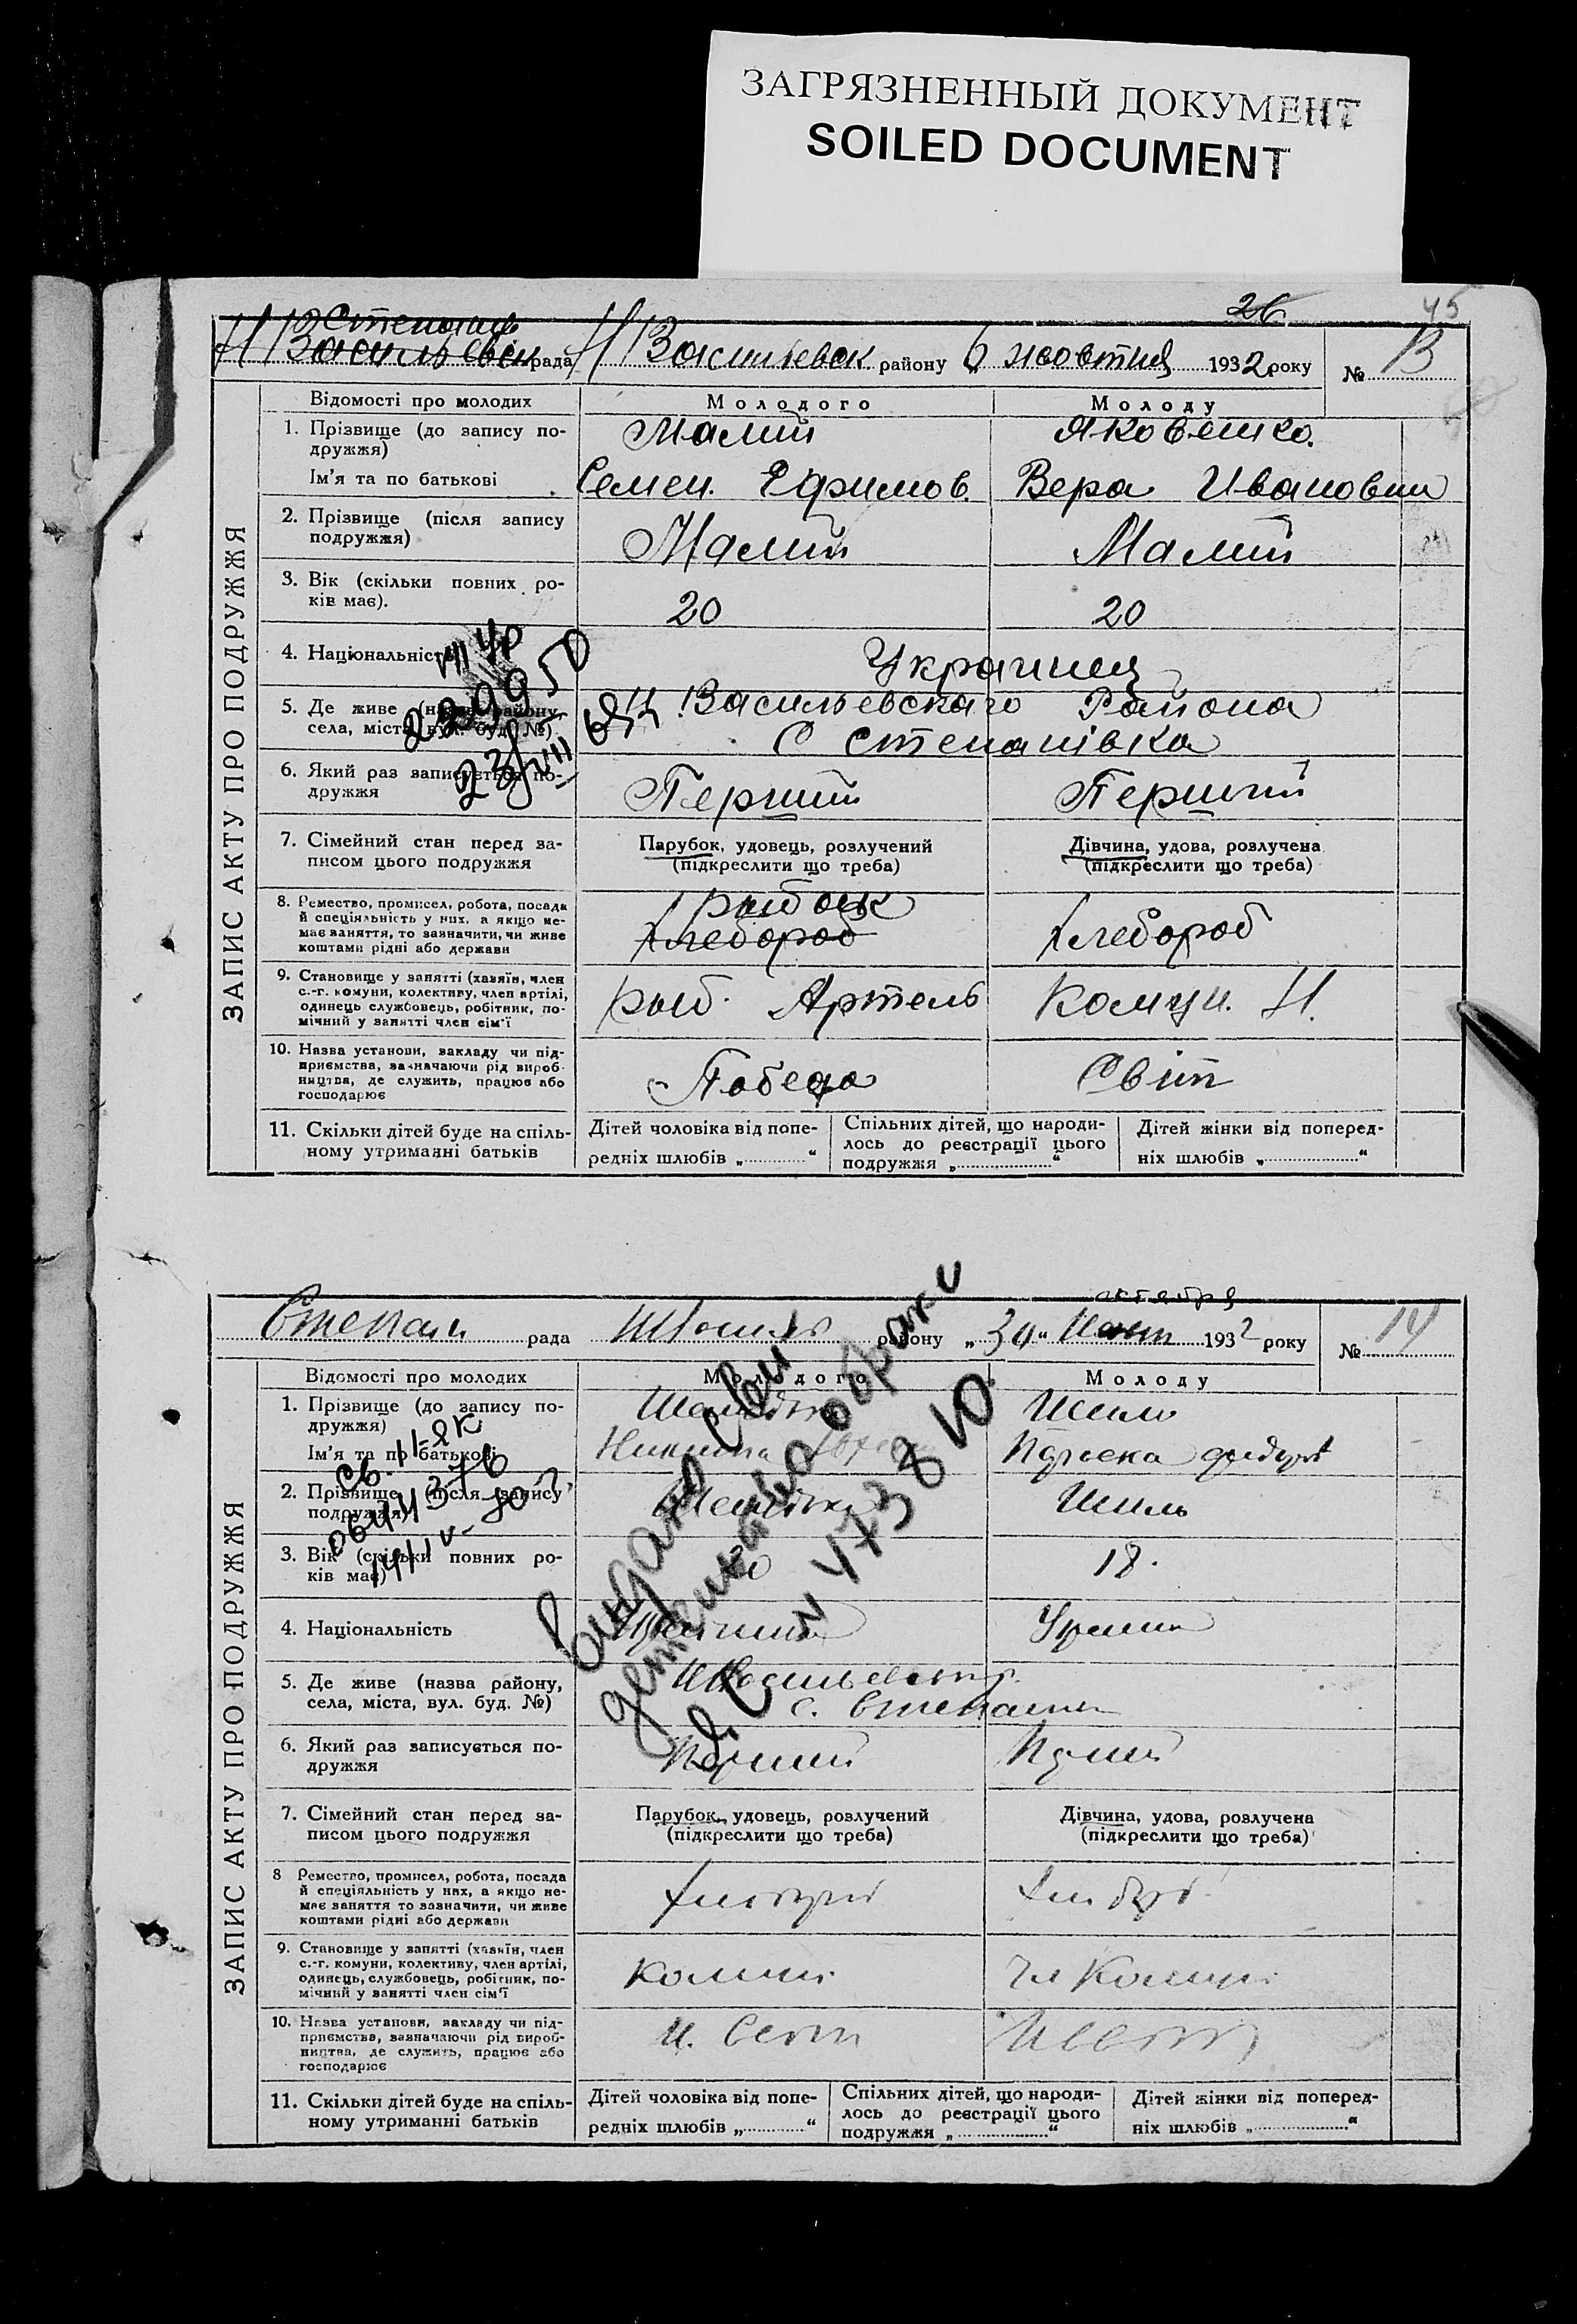 ЗАГРЯЗНЕННЫЙ ДОКУМЕНТ
SOILED DOCUMENT
45
26
Степанів
Н Васильевск рада Н Васильевск району 6 жовтня 1932 року № 13
ЗАПИС АКТУ ПРО ПОДРУЖЖЯ
Відомості про молодих
Молодого
Молоду
1. Прізвище (до запису по-
дружжя)
Малий
Яковенко.
Ім'я та по батькові
Семен. Ефимов.
Вера Ивановни
2. Прізвище (після запису
подружжя)
Малий
Малий
3. Вік (скільки повних ро-
ків має).
20
20
4. Національність
Украинец
5. Де живе (назва району,
села, міста, вул. буд. №)
Н Васильевского Района
С Степанівка
6. Який раз записується по-
дружжя
Перший
Перший
7. Сімейний стан перед за-
писом цього подружжя
Парубок, удовець, розлучений
(підкреслити що треба)
Дівчина, удова, розлучена
(підкреслити що треба)
8. Ремество, промисел, робота, посада
й спеціяльність у них, а якщо не-
має заняття, то зазначити, чи живе
коштами рідні або держави
рыбак
Хлебороб
Хлебороб
9. Становище у занятті (хазяїн, член
с.-г. комуни, колективу, член артілі,
одинець службовець, робітник, по-
мічний у занятті член сім'ї
рыб. Артель
Комун. Н.
10. Назва установи, закладу чи під-
приємства, зазначаючи рід вироб-
ництва, де служить, працює або
господарює
Победа
Світ
11. Скільки дітей буде на спіль-
ному утриманні батьків
Дітей чоловіка від попе-
редніх шлюбів „ “
Спільних дітей, що народи-
лось до реєстрації цього
подружжя „ “
Дітей жінки від поперед-
ніх шлюбів „ “
229950
октября
Степан рада району „30“ 1932 року № 14
ЗАПИС АКТУ ПРО ПОДРУЖЖЯ
Відомості про молодих
Молодого
Молоду
1. Прізвище (до запису по-
дружжя)
Шило
Ім'я та по батькові
2. Прізвище (після запису
подружжя)
Шиль
3. Вік (скільки повних ро-
ків має)
20
18.
4. Національність
5. Де живе (назва району,
села, міста, вул. буд. №)
с. Степан
6. Який раз записується по-
дружжя
Перший
7. Сімейний стан перед за-
писом цього подружжя
Парубок, удовець, розлучений
(підкреслити що треба)
Дівчина, удова, розлучена
(підкреслити що треба)
8 Ремество, промисел, робота, посада
й спеціяльність у них, а якщо не-
має заняття то зазначити, чи живе
коштами рідні або держави
9. Становище у занятті (хазяїн, член
с.-г. комуни, колективу, член артілі,
одинець, службовець, робітник, по-
мічний у занятті член сім'ї
комун.
чл Комун.
10. Назва установи, закладу чи під-
приємства, зазначаючи рід вироб-
ництва, де служить, працює або
господарює
Н. Свет
11. Скільки дітей буде на спіль-
ному утриманні батьків
Дітей чоловіка від попе-
редніх шлюбів „ “
Спільних дітей, що народи-
лось до реєстрації цього
подружжя „ “
Дітей жінки від поперед-
ніх шлюбів „ “
Видано
о браке
N 473810